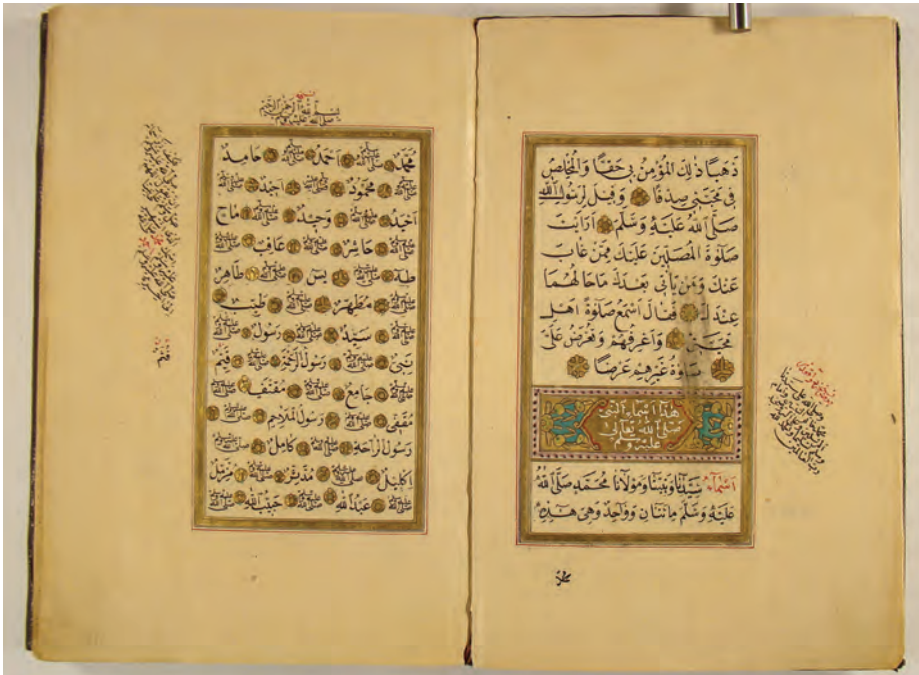 ذَهَبًا ذٰلِكَ الْمُؤْمِنُ بِي حَقًّا وَالْمُخْلِصُ
فِي مَحَبَّتِي صِدْقًا وَقِيلَ لِرَسُولِ اللّٰهِ
صَلَّى اللّٰهُ عَلَيْهِ وَسَلَّمَ اَرَاَيْتَ
صَلٰوةَ الْمُصَلِّينَ عَلَيْكَ مِمَّنْ غَابَ
عَنْكَ وَمَنْ يَاْتِي بَعْدَكَ مَا حَالُهُمَا
عِنْدَكَ فَقَالَ اَسْمَعُ صَلٰوةَ اَهْلِ
مَحَبَّتِي وَاَعْرِفُهُمْ وَتُعْرَضُ عَلَيَّ
صَلٰوةُ غَيْرِهِمْ عَرْضًا
هٰذَا اَسْمَاءُ النَّبِيِّ
صَلَّى اللّٰهُ تَعَالٰى
عَلَيْهِ وَسَلَّمَ
اَسْمَاءُ سَيِّدِنَا وَنَبِيِّنَا وَمَوْلَانَا مُحَمَّدٍ صَلَّى اللّٰهُ
عَلَيْهِ وَسَلَّمَ مِائَتَانِ وَوَاحِدٌ وَهِيَ هٰذِهِ
مُحَمَّدٌ
بِسْمِ اللّٰهِ الرَّحْمٰنِ الرَّحِيمِ
صَلَّى اللّٰهُ عَلَيْهِ وَسَلَّمَ
مُحَمَّدٌ ﷺ اَحْمَدُ ﷺ حَامِدٌ
ﷺ مَحْمُودٌ ﷺ اَحِيدٌ ﷺ
اَحْيَدُ ﷺ وَحِيدٌ ﷺ مَاحٍ
ﷺ حَاشِرٌ ﷺ عَاقِبٌ ﷺ
طٰهٰ ﷺ يٰسٓ ﷺ طَاهِرٌ
ﷺ مُطَهَّرٌ ﷺ طَيِّبٌ
ﷺ سَيِّدٌ ﷺ رَسُولٌ ﷺ
نَبِيٌّ ﷺ رَسُولُ الرَّحْمَةِ ﷺ قَيِّمٌ
ﷺ جَامِعٌ ﷺ مُقْتَفٍ ﷺ
مُقَفّٰى ﷺ رَسُولُ الْمَلَاحِمِ ﷺ
رَسُولُ الرَّاحَةِ ﷺ كَامِلٌ ﷺ
اِكْلِيلٌ ﷺ مُدَّثِّرٌ ﷺ مُزَّمِّلٌ
ﷺ عَبْدُ اللّٰهِ ﷺ حَبِيبُ اللّٰهِ ﷺ